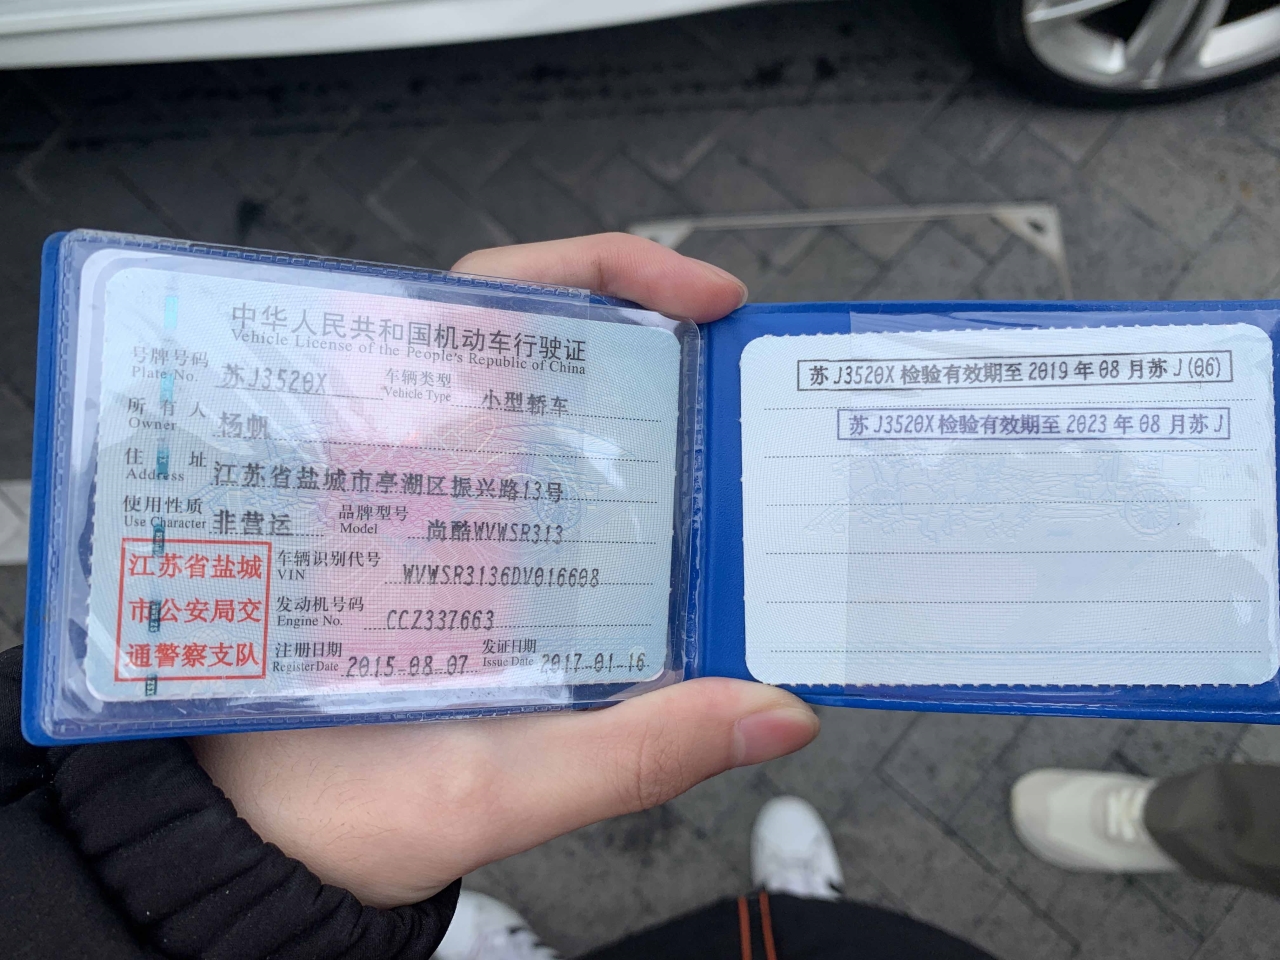 中华人民共和国机动车行驶证
Vehicle License of the People's Republic of China
号牌号码 苏J3520X 车辆类型 小型轿车
Plate No. Vehicle Type
所有人 杨帆
Owner
住址 江苏省盐城市亭湖区振兴路13号
Address
使用性质 非营运 品牌型号 尚酷WVWSR313
Use Character Model
江苏省盐城
市公安局交
通警察支队
车辆识别代号 WVWSR3136DV016608
VIN
发动机号码 CCZ337663
Engine No.
注册日期 2015-08-07 发证日期 2017-01-16
Register Date Issue Date
苏J3520X检验有效期至2019年08月苏J(06)
苏J3520X检验有效期至2023年08月苏J